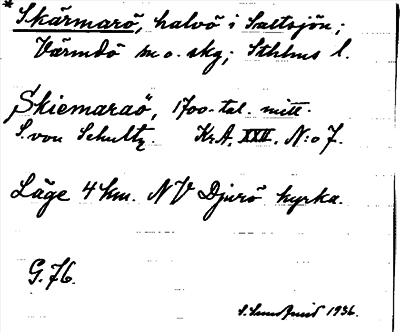 * Skärmarö, halvö i Saltsjön;
Värmdö m o. skg; Sthlms l.
Skiemaraö, 1700-tal. mitt.
S. von Schultz. Kr.A. XXII. N:o 7.
Läge 4 km. NV Djurö kyrka.
G. 76.
1936.